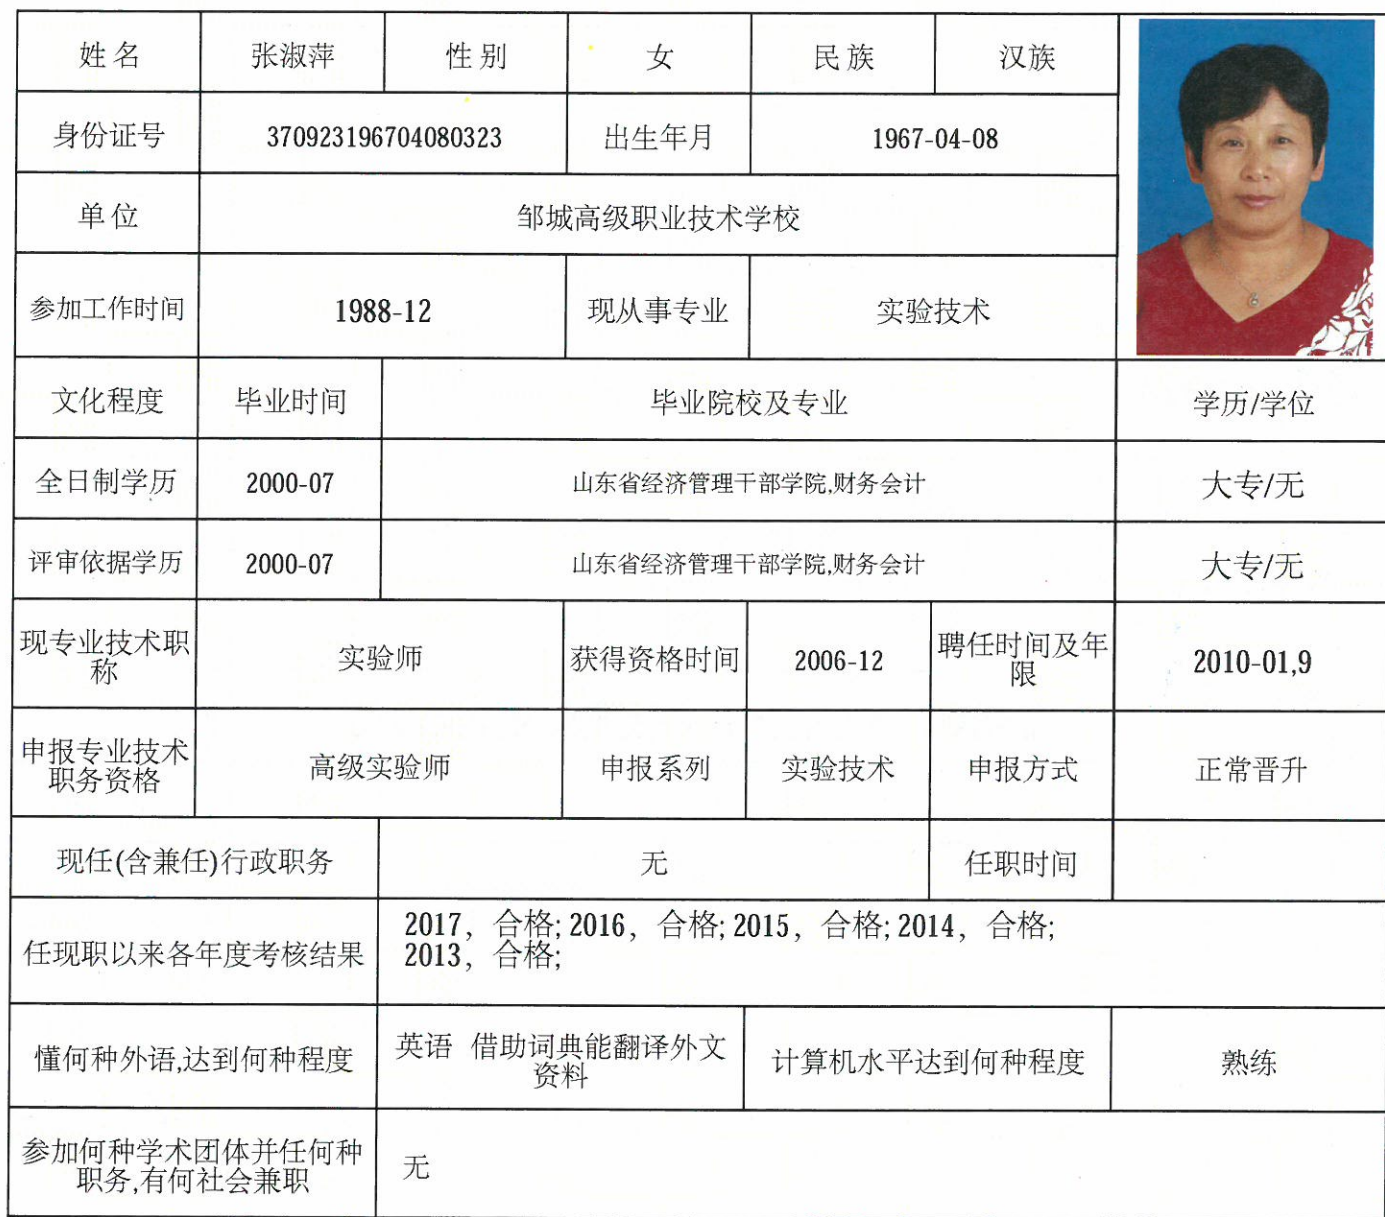 姓名 张淑萍 性别 女 民族 汉族
身份证号 370923196704080323 出生年月 1967-04-08
单位 邹城高级职业技术学校
参加工作时间 1988-12 现从事专业 实验技术
文化程度 毕业时间 毕业院校及专业 学历/学位
全日制学历 2000-07 山东省经济管理干部学院,财务会计 大专/无
评审依据学历 2000-07 山东省经济管理干部学院,财务会计 大专/无
现专业技术职
称
实验师 获得资格时间 2006-12
聘任时间及年
限
2010-01,9
申报专业技术
职务资格
高级实验师 申报系列 实验技术 申报方式 正常晋升
现任(含兼任)行政职务 无 任职时间
任现职以来各年度考核结果
2017，合格; 2016，合格; 2015，合格; 2014，合格;
2013，合格;
懂何种外语,达到何种程度
英语 借助词典能翻译外文
资料
计算机水平达到何种程度 熟练
参加何种学术团体并任何种
职务,有何社会兼职
无